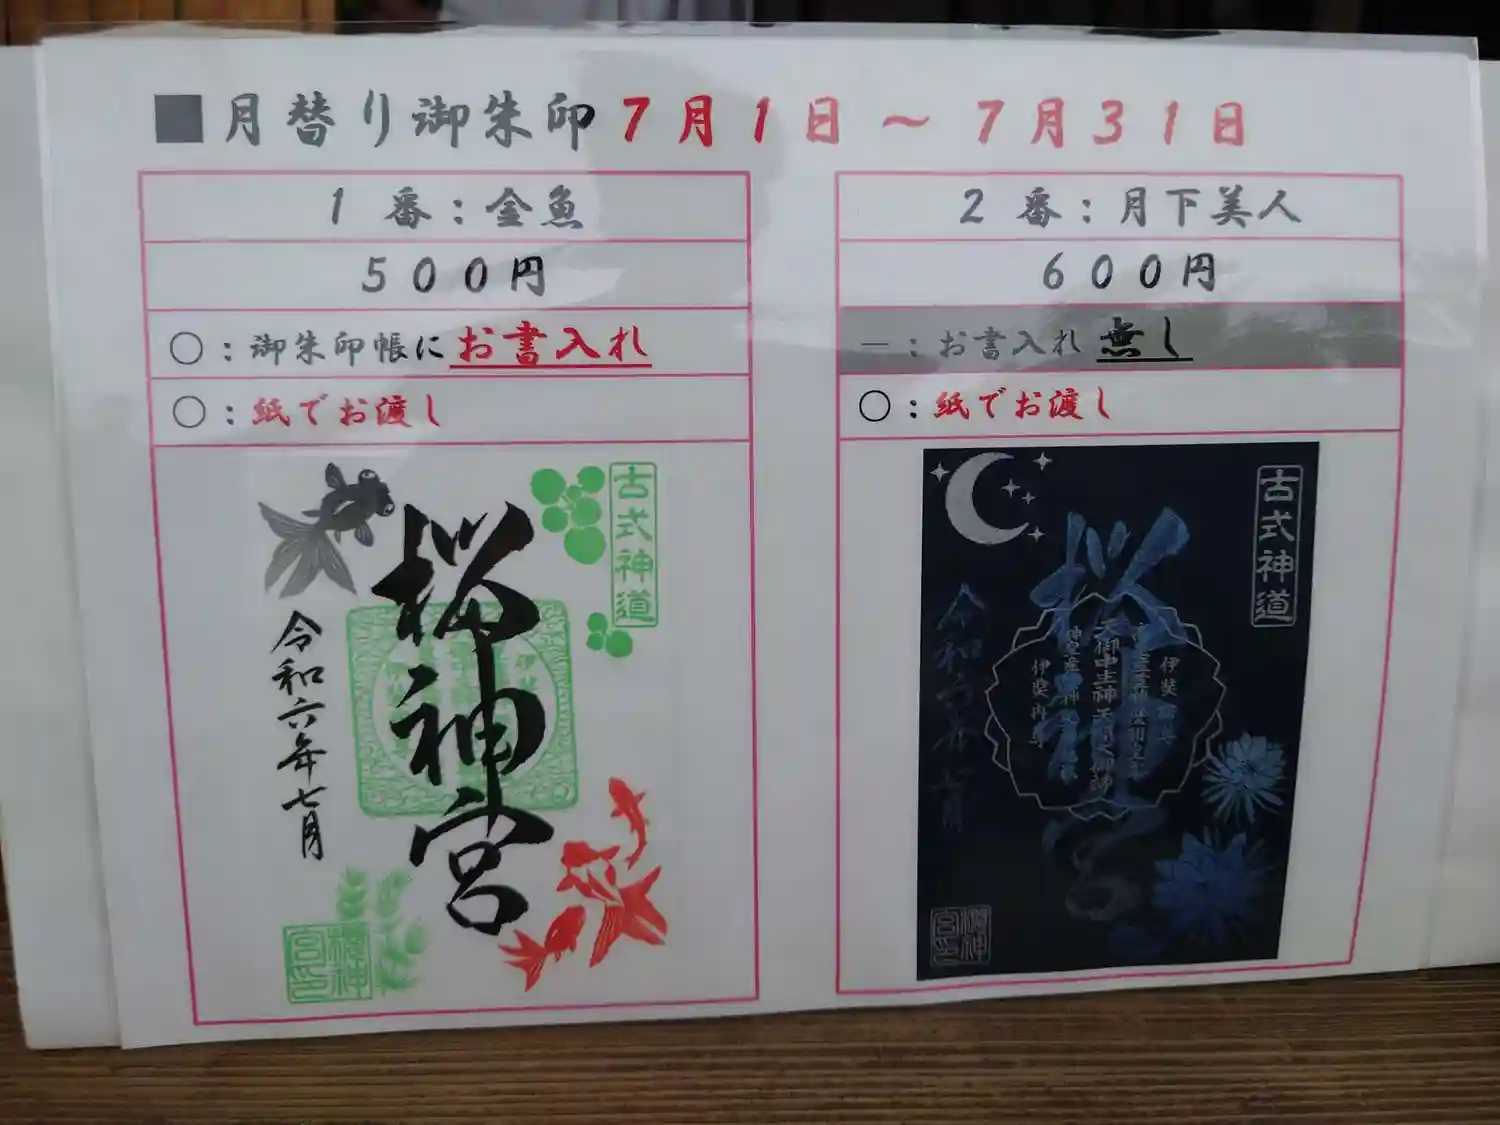 ■月替り御朱印7月1日～7月31日
1番：金魚
500円
○：御朱印帳にお書入れ
○：紙でお渡し
古式神道
桜神宮
令和六年七月
2番：月下美人
600円
－：お書入れ無し
○：紙でお渡し
古式神道
桜神宮
令和六年七月
天御中主神